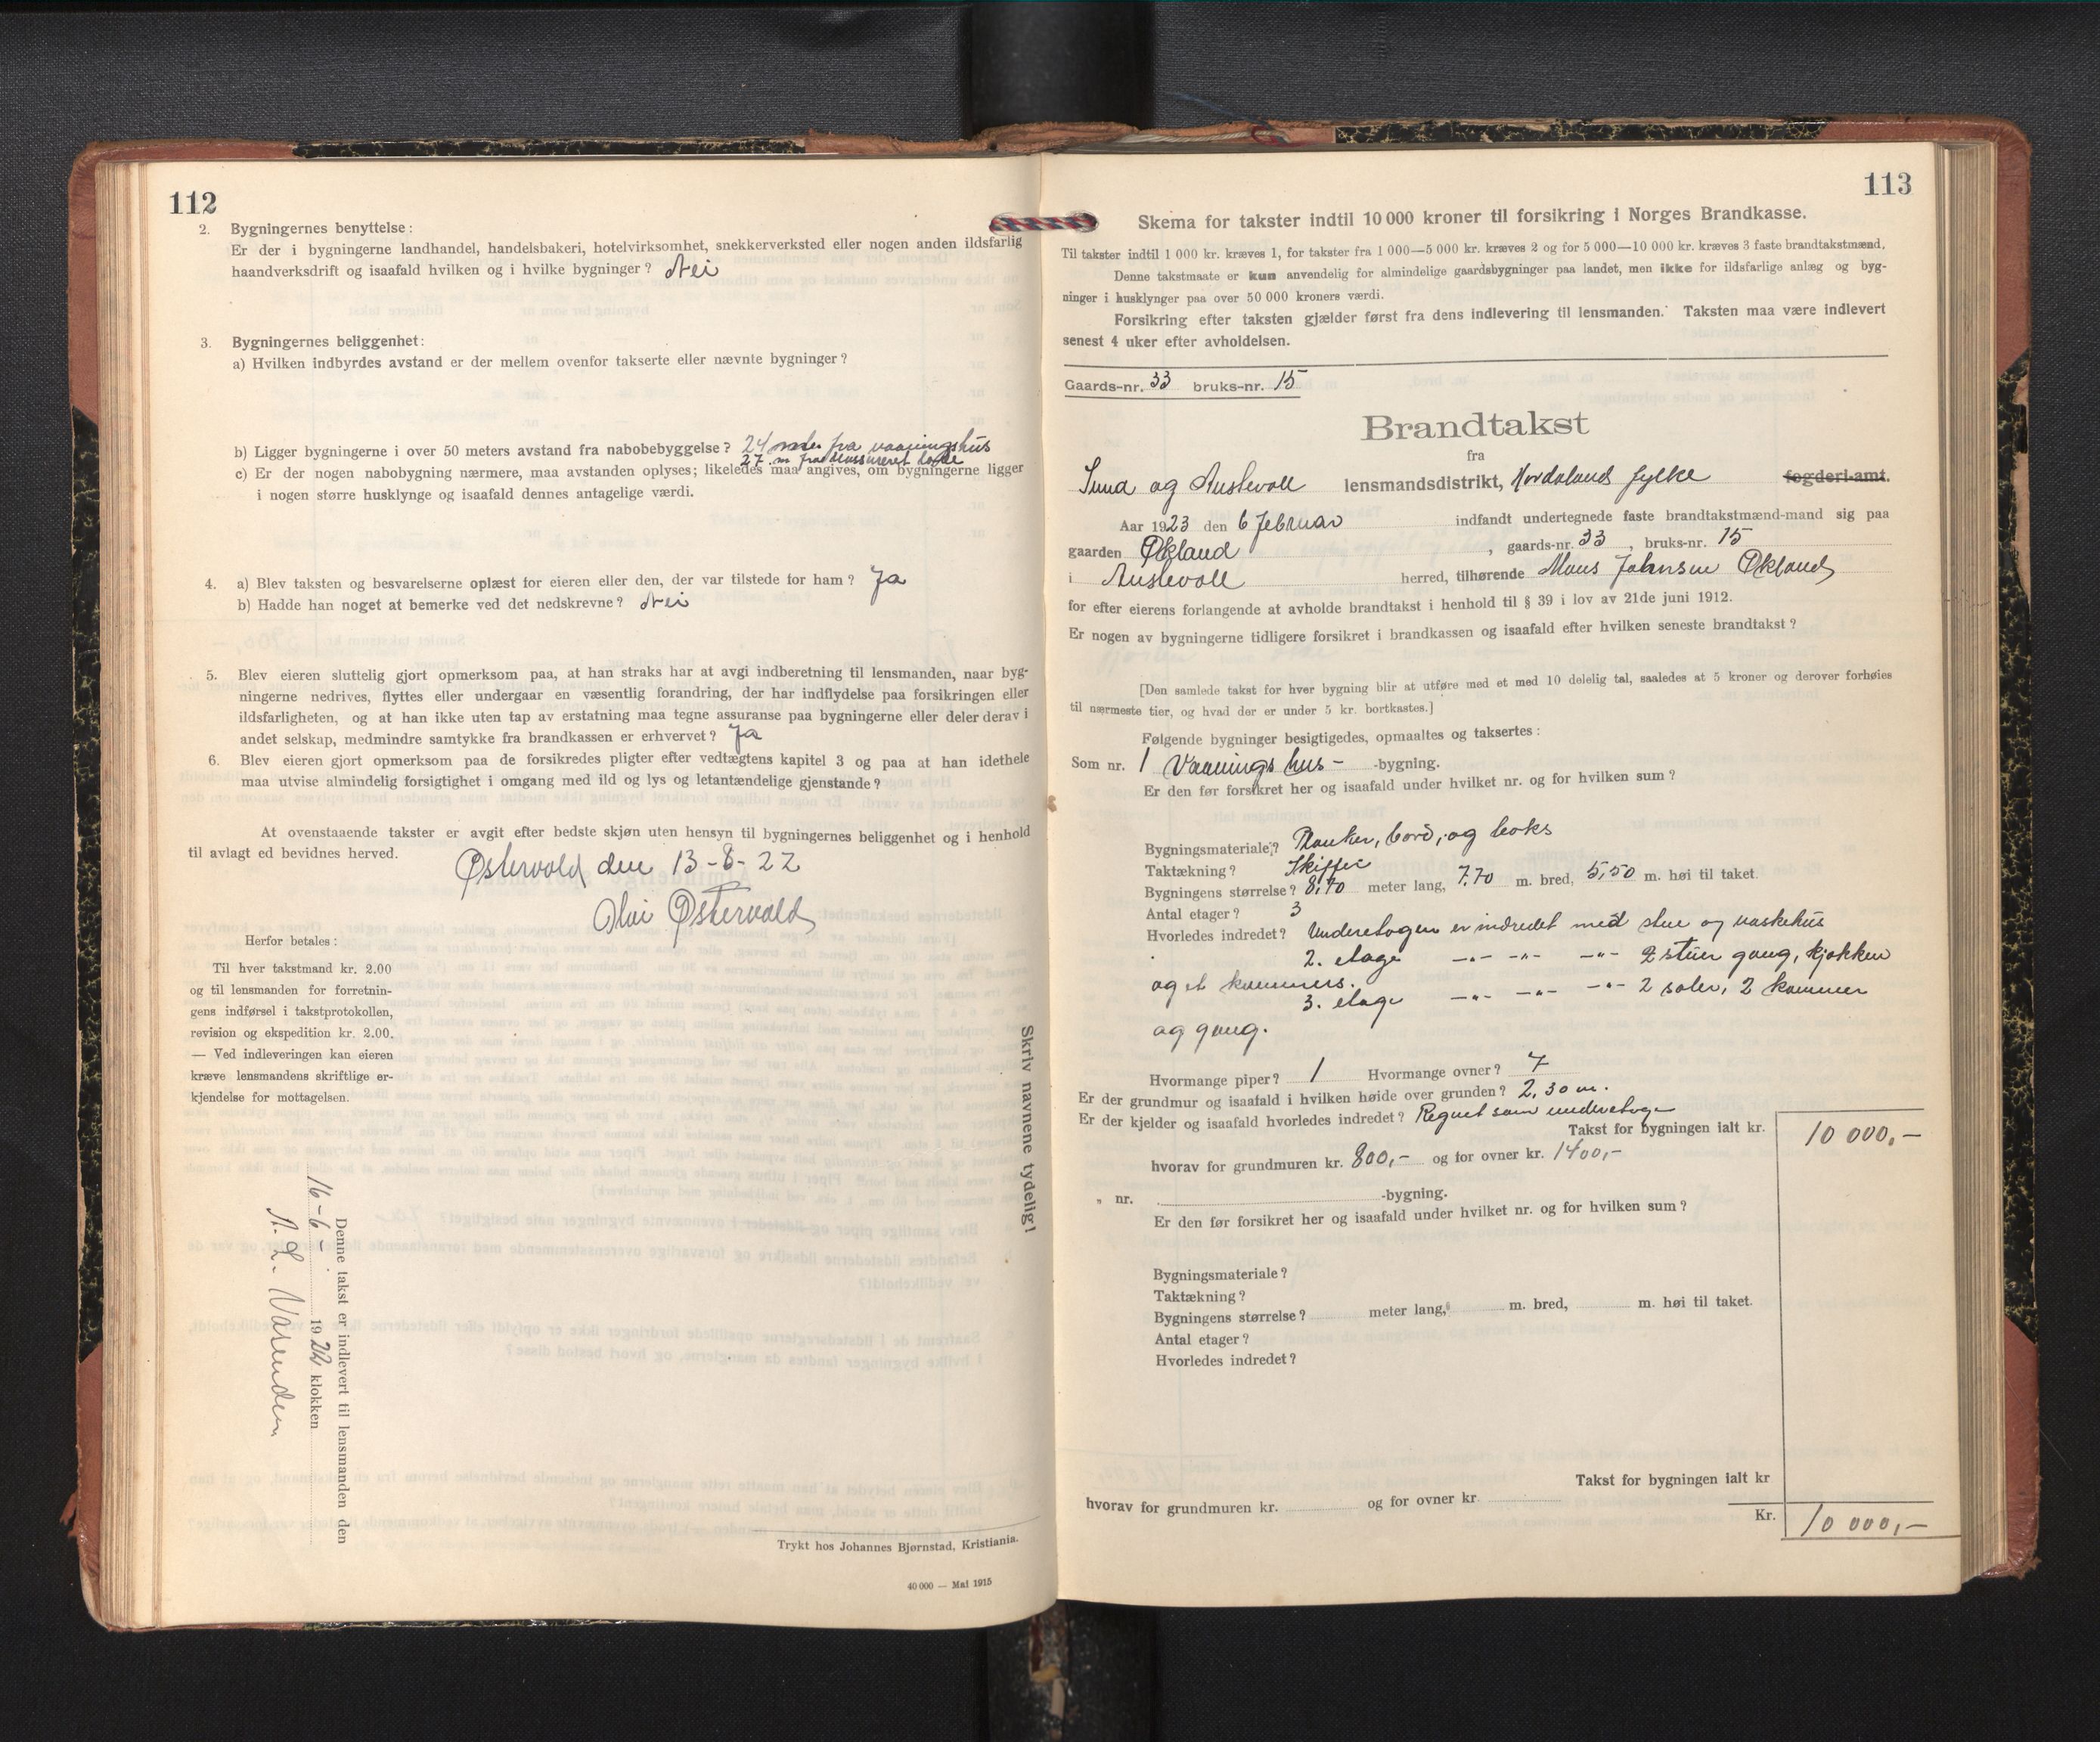 112
2. Bygningernes benyttelse:
Er der i bygningerne landhandel, handelsbakeri, hotelvirksomhet, snekkerverksted eller nogen anden ildsfarlig
haandverksdrift og isaafald hvilken og i hvilke bygninger? Nei
3. Bygningernes beliggenhet:
a) Hvilken indbyrdes avstand er der mellem ovenfor takserte eller nævnte bygninger?
b) Ligger bygningerne i over 50 meters avstand fra nabobebyggelse? 24 meter fra vaaningshus
27 m fra uassureret løde
c) Er der nogen nabobygning nærmere, maa avstanden oplyses; likeledes maa angives, om bygningerne ligger
i nogen større husklynge og isaafald dennes antagelige værdi.
4. a) Blev taksten og besvarelserne oplæst for eieren eller den, der var tilstede for ham? Ja
b) Hadde han noget at bemerke ved det nedskrevne? Nei
5. Blev eieren sluttelig gjort opmerksom paa, at han straks har at avgi indberetning til lensmanden, naar byg-
ningerne nedrives, flyttes eller undergaar en væsentlig forandring, der har indflydelse paa forsikringen eller
ildsfarligheten, og at han ikke uten tap av erstatning maa tegne assuranse paa bygningerne eller deler derav i
andet selskap, medmindre samtykke fra brandkassen er erhvervet? Ja
6. Blev eieren gjort opmerksom paa de forsikredes pligter efter vedtægtens kapitel 3 og paa at han idethele
maa utvise almindelig forsigtighet i omgang med ild og lys og letantændelige gjenstande?
At ovenstaaende takster er avgit efter bedste skjøn uten hensyn til bygningernes beliggenhet og i henhold
til avlagt ed bevidnes herved.
Østervold den 13-8-22
Østervold
Herfor betales:
Til hver takstmand kr. 2.00
og til lensmanden for forretnin-
gens indførsel i takstprotokollen,
revision og ekspedition kr. 2.00.
— Ved indleveringen kan eieren
kræve lensmandens skriftlige er-
kjendelse for mottagelsen.
Skriv navnene tydelig!
Denne takst er indlevert til lensmanden den
16-6- 1922 klokken
Trykt hos Johannes Bjørnstad, Kristiania.
40 000 — Mai 1915
113
Skema for takster indtil 10 000 kroner til forsikring i Norges Brandkasse.
Til takster indtil 1 000 kr. kræves 1, for takster fra 1 000—5 000 kr. kræves 2 og for 5 000—10 000 kr. kræves 3 faste brandtakstmænd.
Denne takstmaate er kun anvendelig for almindelige gaardsbygninger paa landet, men ikke for ildsfarlige anlæg og byg-
ninger i husklynger paa over 50 000 kroners værdi.
Forsikring efter taksten gjælder først fra dens indlevering til lensmanden. Taksten maa være indlevert
senest 4 uker efter avholdelsen.
Gaards-nr. 33 bruks-nr. 15
Brandtakst
fra
Sund og Austevoll lensmandsdistrikt, Hordaland fylke fogderi-amt.
Aar 1923 den 6 februar indfandt undertegnede faste brandtakstmænd-mand sig paa
gaarden Økland, gaards-nr. 33, bruks-nr. 15
i Austevoll herred, tilhørende Mons Johnsen Økland
for efter eierens forlangende at avholde brandtakst i henhold til § 39 i lov av 21de juni 1912.
Er nogen av bygningerne tidligere forsikret i brandkassen og isaafald efter hvilken seneste brandtakst?
[Den samlede takst for hver bygning blir at utføre med et med 10 delelig tal, saaledes at 5 kroner og derover forhøies
til nærmeste tier, og hvad der er under 5 kr. bortkastes.]
Følgende bygninger besigtigedes, opmaaltes og taksertes:
Som nr. 1 Vaanings hus- -bygning.
Er den før forsikret her og isaafald under hvilket nr. og for hvilken sum?
Bygningsmateriale? Planker, bord, og boks
Taktækning? Skiffer
Bygningens størrelse? 8,70 meter lang, 7,70 m. bred, 5,50 m. høi til taket.
Antal etager? 3
Hvorledes indredet? Underetagen er indredet med stue og vaskehus
2. etage —"— —"— —"— 2 stuer gang, kjøkken
og et kammers.
3. etage —"— —"— —"— 2 saler, 2 kammer
og gang.
Hvormange piper? 1 Hvormange ovner? 7
Er der grundmur og isaafald i hvilken høide over grunden? 2,30 m.
Er der kjelder og isaafald hvorledes indredet? Regnet som underetage
Takst for bygningen ialt kr. 10 000,-
hvorav for grundmuren kr. 800,- og for ovner kr. 1400,-
„ nr. -bygning.
Er den før forsikret her og isaafald under hvilket nr. og for hvilken sum?
Bygningsmateriale?
Taktækning?
Bygningens størrelse? meter lang, m. bred, m. høi til taket.
Antal etager?
Hvorledes indredet?
Takst for bygningen ialt kr
hvorav for grundmuren kr. og for ovner kr.
Kr. 10 000,-